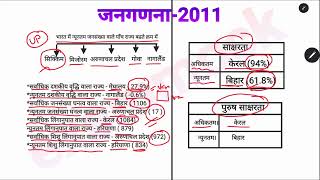 जनगणना-2011
भारत में न्यूनतम जनसंख्या वाले पाँच राज्य बढ़ते क्रम में
सिक्किम मिजोरम अरुणाचल प्रदेश गोवा नागालैंड
*सर्वाधिक दशकीय वृद्धि वाला राज्य - मेघालय 27.9%
*न्यूनतम दशकीय वृद्धि वाला राज्य - नागालैंड -0.6%
*सर्वाधिक जनसंख्या घनत्व वाला राज्य - बिहार 1106
*न्यूनतम जनसंख्या घनत्व वाला राज्य - अरुणाचल प्रदेश 17
*सर्वाधिक लिंगानुपात वाला राज्य - केरल 1084
*न्यूनतम लिंगानुपात वाला राज्य - हरियाणा ( 879)
*सर्वाधिक शिशु लिंगानुपात वाला राज्य - अरुणाचल प्रदेश 972)
*न्यूनतम शिशु लिंगानुपात वाला राज्य - हरियाणा ( 834)
साक्षरता
अधिकतम केरल (94%)
न्यूनतम बिहार 61.8%
पुरुष साक्षरता
अधिकतम केरल
न्यूनतम बिहार